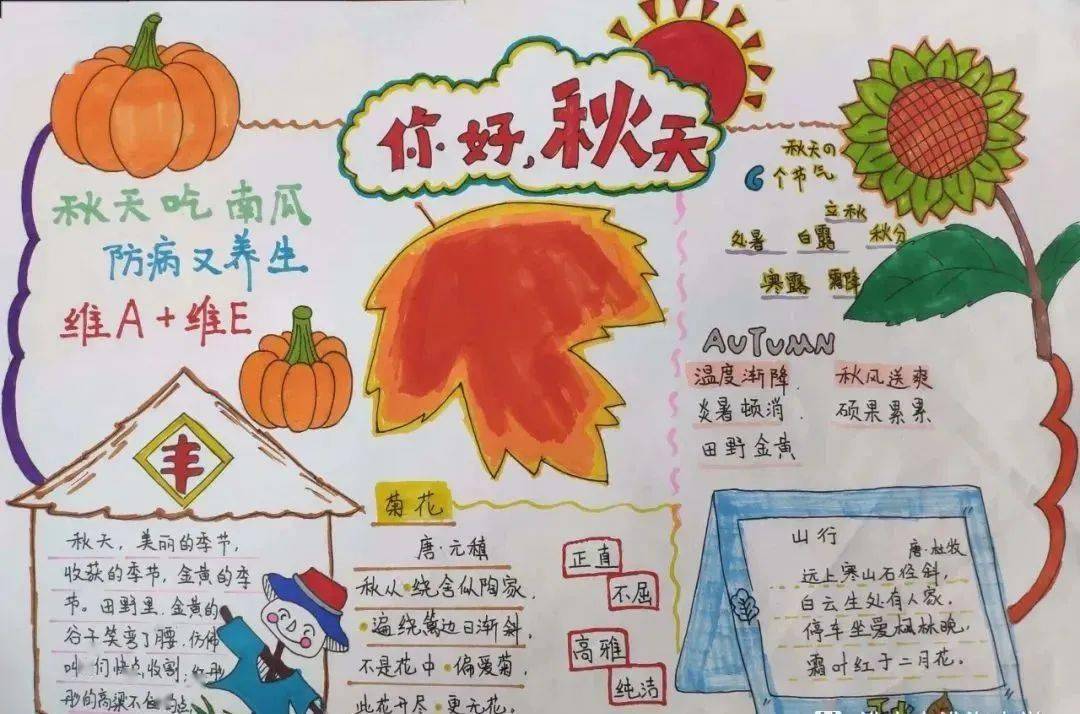 你好,秋天
秋天吃南瓜
防病又养生
维A+维E
秋天の
6个节气
立秋
处暑 白露 秋分
寒露 霜降
AUTUMN
温度渐降 秋风送爽
炎暑顿消 硕果累累
田野金黄
丰
秋天,美丽的季节,
收获的季节,金黄的季
节。田野里,金黄的
谷子笑弯了腰,仿佛
叫 们快点收割;红彤
彤的高粱不住 点
菊花
唐·元稹
秋丛·绕舍似陶家,
·遍绕篱边日渐斜,
不是花中·偏爱菊
此花开尽·更无花。
正直
不屈
高雅
纯洁
山行
唐·杜牧
远上寒山石径斜,
白云生处有人家。
停车坐爱枫林晚,
霜叶红于二月花。